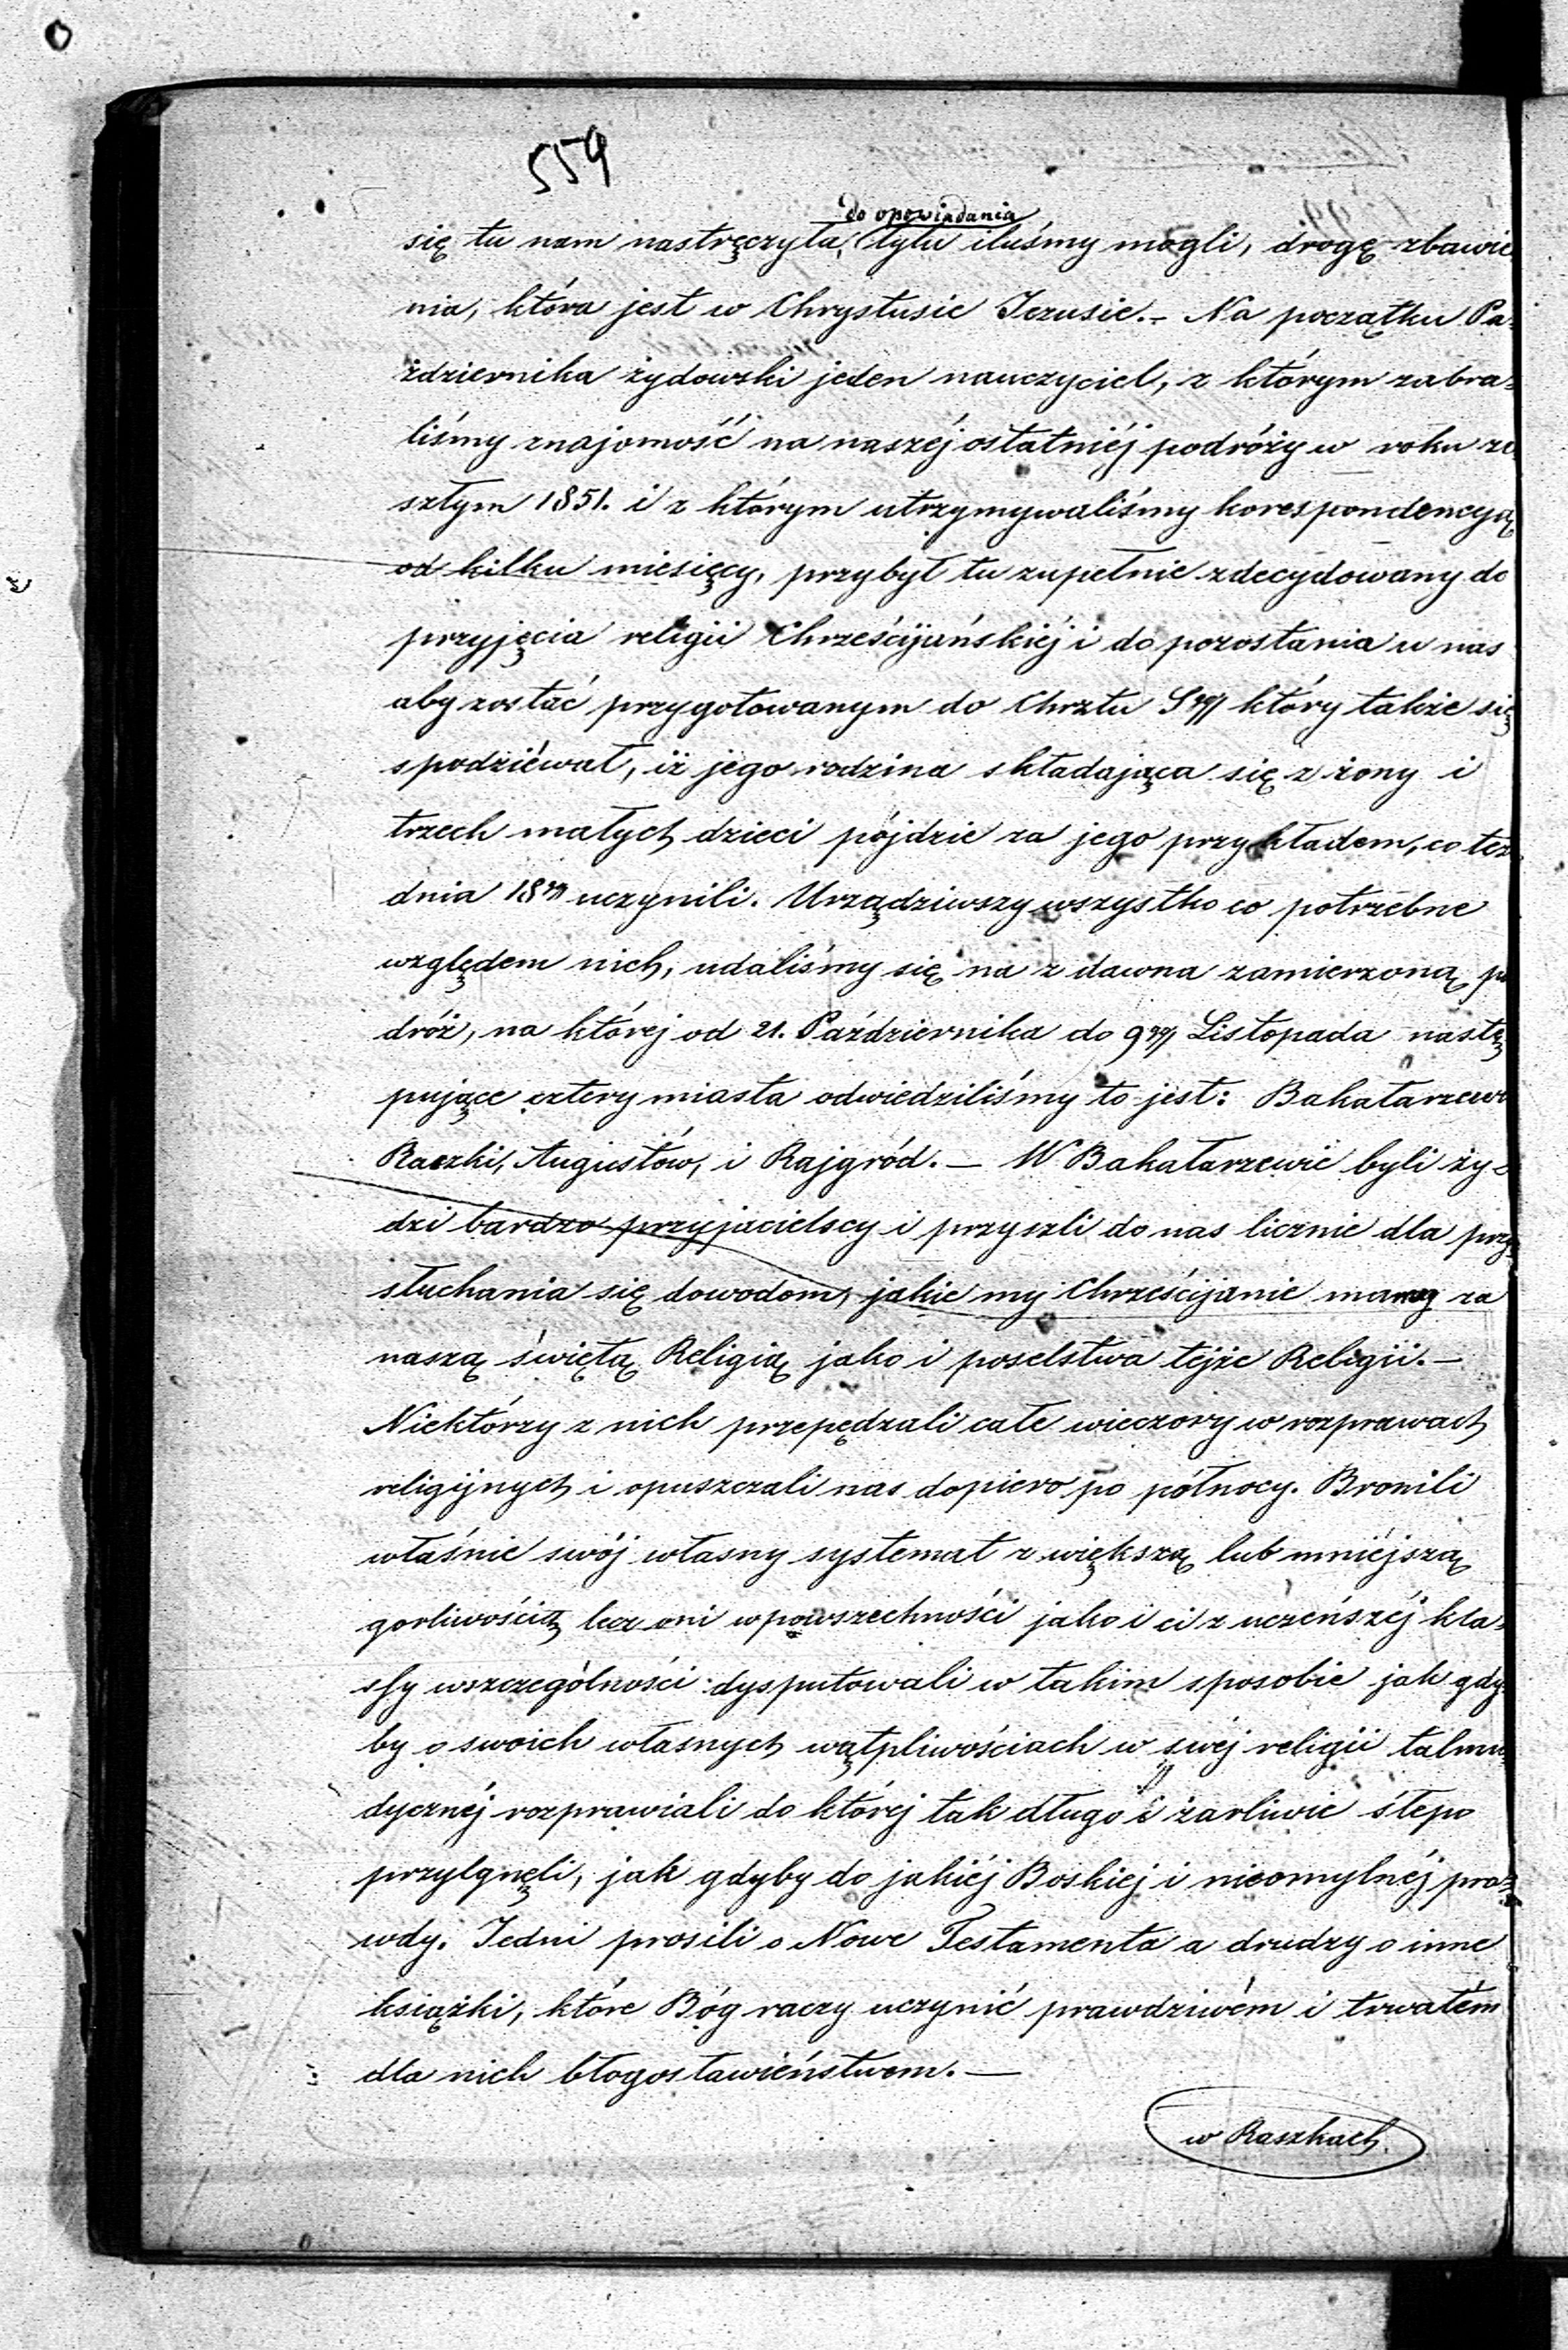 554
do opowiadania
się tu nam nastręczyła, tylu iluśmy mogli, drogę zbawie
nia, która jest w Chrystusie Jezusie.- Na początku Pa-
ździernika żydowski jeden nauczyciel, z którym zabra-
liśmy znajomość na naszéj ostatniéj podróży w roku ze
szłym 1851. i z którym utrzymywaliśmy korespondencyą
od kilku miesięcy, przybył tu zupełnie zdecydowany do
przyjęcia religii Chrześcijańskiéj i do pozostania u nas
aby zostać przygotowanym do Chrztu Sgo który także się
spodziéwał, iż jego rodzina składająca się z żony i
trzech małych dzieci pójdzie za jego przykładem, co też
dnia 18go uczynili. Urządziwszy wszystko co potrzebne
względem nich, udaliśmy się na z dawna zamierzoną po
dróż, na któréj od 21. Października do 9go Listopada nastę
pujące cztery miasta odwiedziliśmy to jest: Bakałarzewo
Raczki, Augustów, i Rajgród. — W Bakałarzewie byli ży-
dzi bardzo przyjacielscy i przyszli do nas licznie dla przy
słuchania się dowodom, jakie my Chrześcijanie mamy za
naszą świętą Religią jako i poselstwa tejże Religii.—
Niektórzy z nich przepędzali całe wieczory w rozprawach
religijnych i opuszczali nas dopiero po północy. Bronili
właśnie swój własny systemat z większą lub mniéjszą
gorliwością lecz oni w powszechności jako i ci z uczeńszéj kla-
ssy wszczególności dysputowali w takim sposobie jak gdy-
by o swoich własnych wątpliwościach w swéj religii talmu
dycznéj rozprawiali do któréj tak długo i żarliwie ślepo
przylgnęli, jak gdyby do jakiéj Boskiej i nieomylnéj pra-
wdy. Jedni prosili o Nowe Testamenta a drudzy o inne
książki, które Bóg raczy uczynić prawdziwém i trwałém
dla nich błogosławieństwem.—
w Raszkach